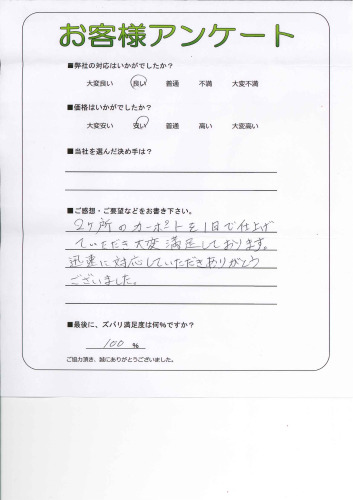 お客様アンケート
■弊社の対応はいかがでしたか？
大変良い 良い 普通 不満 大変不満
■価格はいかがでしたか？
大変安い 安い 普通 高い 大変高い
■当社を選んだ決め手は？
■ご感想・ご要望などをお書き下さい。
2ヶ所のカーポートを1日で仕上げ
ていただき大変満足しております。
迅速に対応していただきありがとう
ございました。
■最後に、ズバリ満足度は何％ですか？
100 %
ご協力頂き、誠にありがとうございました。